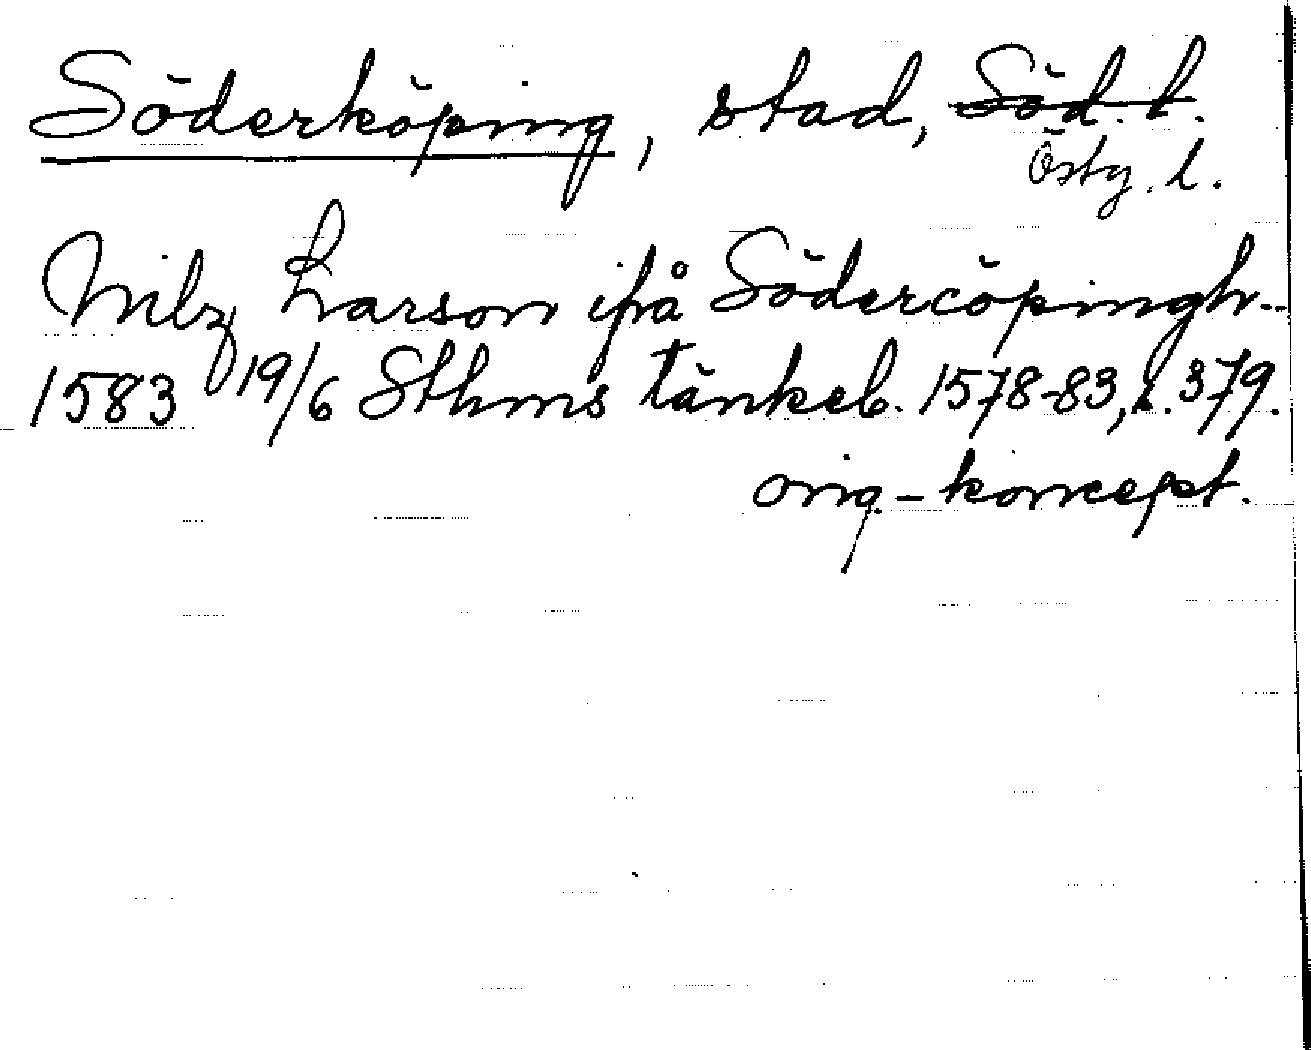 Söderköping, stad, Söd. l.
Östg. l.
Nilz Larson ifrå Södercöpingh--
1583 19/6 Sthms tänkeb. 1578-83, s. 379.
orig.-koncept.